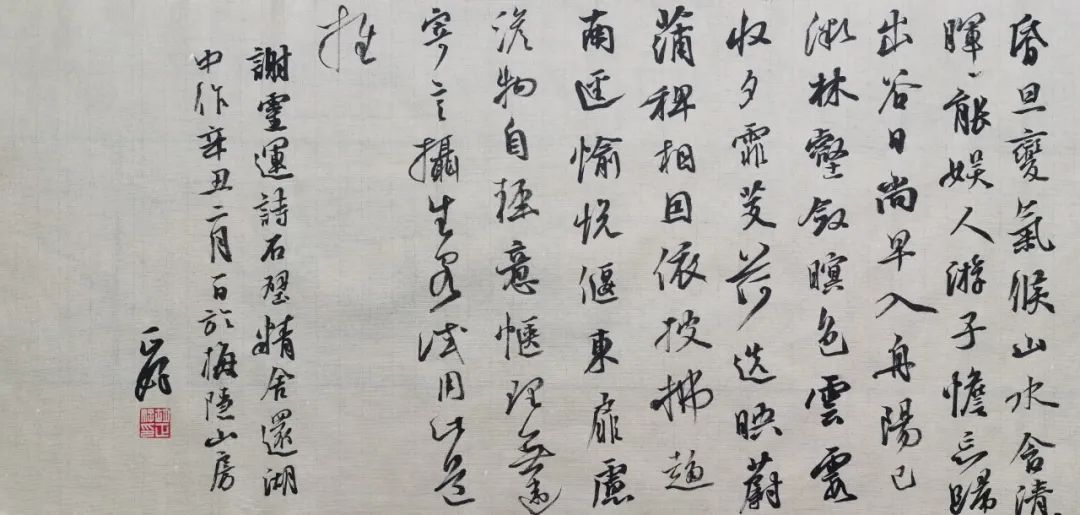 昏旦變氣候山水含清〻
暉〻能娛人游子憺忘歸
出谷日尚早入舟陽已
微林壑斂暝色雲霞
收夕霏芰荷迭映蔚
蒲稗相因依披拂趨
南逕愉悅偃東扉慮
澹物自輕意愜理無違
寄言攝生客試用此道
推
謝靈運詩石壁精舍還湖
中作辛丑二月一日於梅隱山房